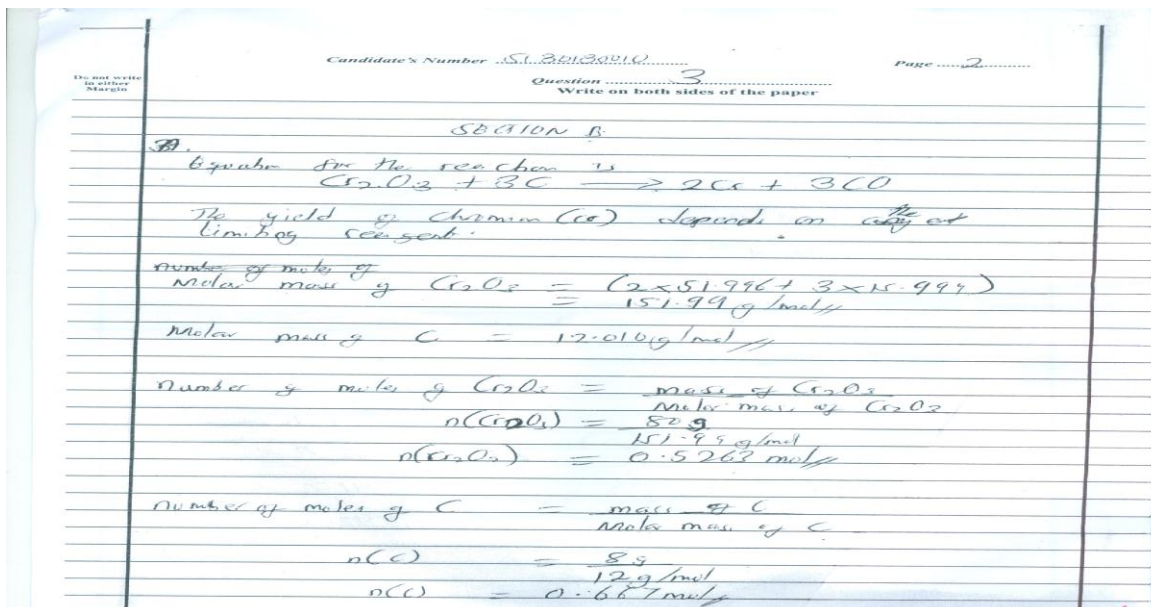 Candidate's Number S1 30130010 Page 2
Do not write
in either
Margin
Question 3
Write on both sides of the paper
SECTION B.
Equation for the reaction is
Cr₂O₃ + 3C → 2Cr + 3CO
The yield of chromium (Cr) depends on the
limiting reagent.
number of moles of
Molar mass of Cr₂O₃ = (2×51.996 + 3×15.999)
= 151.99 g/mol
Molar mass of C = 12.010 g/mol
number of moles of Cr₂O₃ = mass of Cr₂O₃
Molar mass of Cr₂O₃
n(Cr₂O₃) = 80 g
151.99 g/mol
n(Cr₂O₃) = 0.5263 mol
number of moles of C = mass of C
Molar mass of C
n(C) = 8g
12 g/mol
n(C) = 0.667 mol